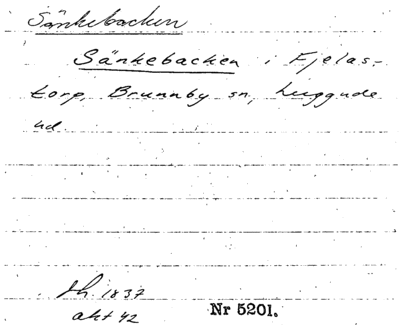 Sänkebacken
Sänkebacken i Fjelas-
torp, Brunnby sn, Luggude
hd.
Lh. 1837
akt 42
Nr 5201.